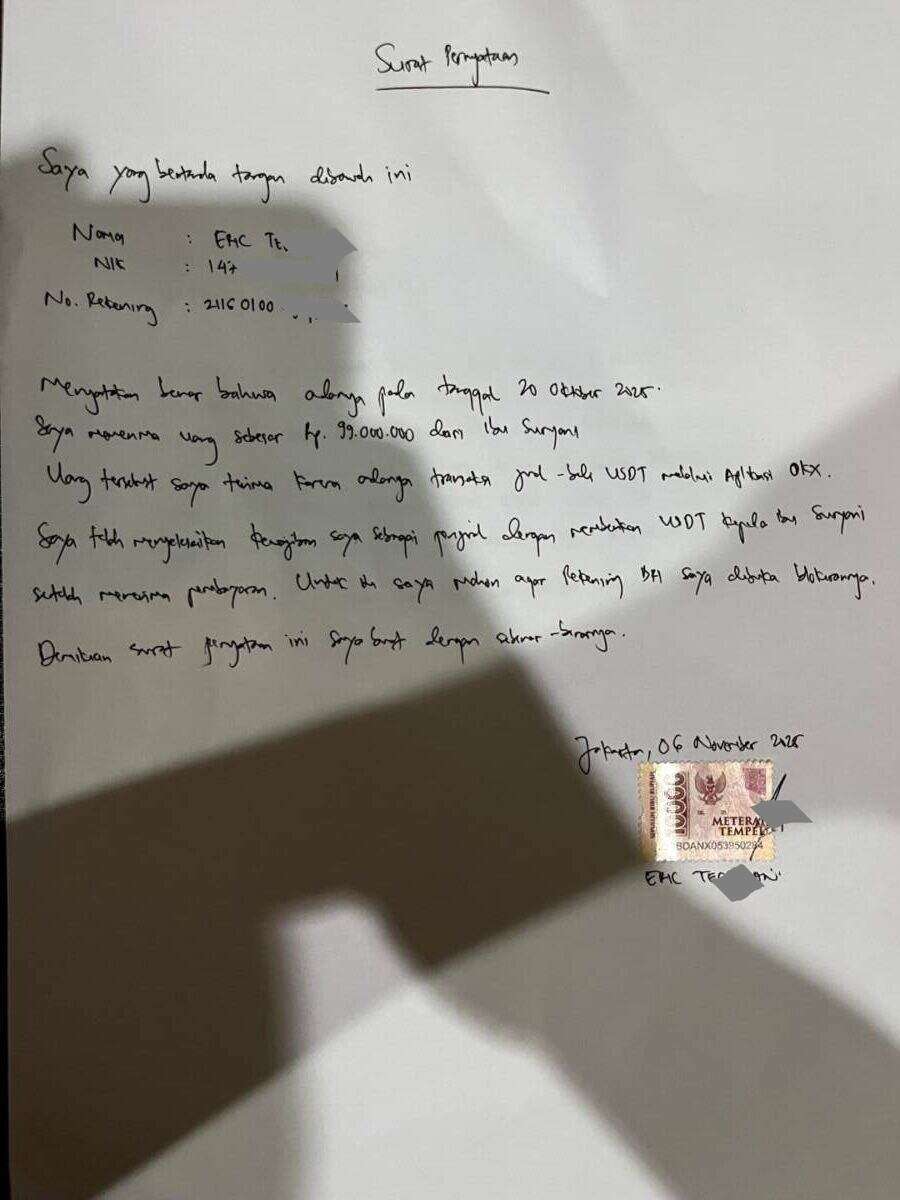 Surat Pernyataan
Saya yang bertanda tangan dibawah ini
Nama : ERIC TE
NIK : 147
No. Rekening : 21160100
Menyatakan benar bahwa adanya pada tanggal 20 Oktober 2025.
Saya menerima uang sebesar Rp. 99.000.000 dari Ibu Suryani
Uang tersebut saya terima karena adanya transaksi jual-beli USDT melalui Aplikasi OKX.
Saya telah menyelesaikan kewajiban saya sebagai penjual dengan memberikan USDT kepada Ibu Suryani
setelah menerima pembayaran. Untuk itu saya mohon agar Rekening saya dibuka blokirannya.
Demikian surat pernyataan ini saya buat dengan sebenar-benarnya.
Jakarta, 06 November 2025
10000
METERAI
TEMPEL
ERIC TE